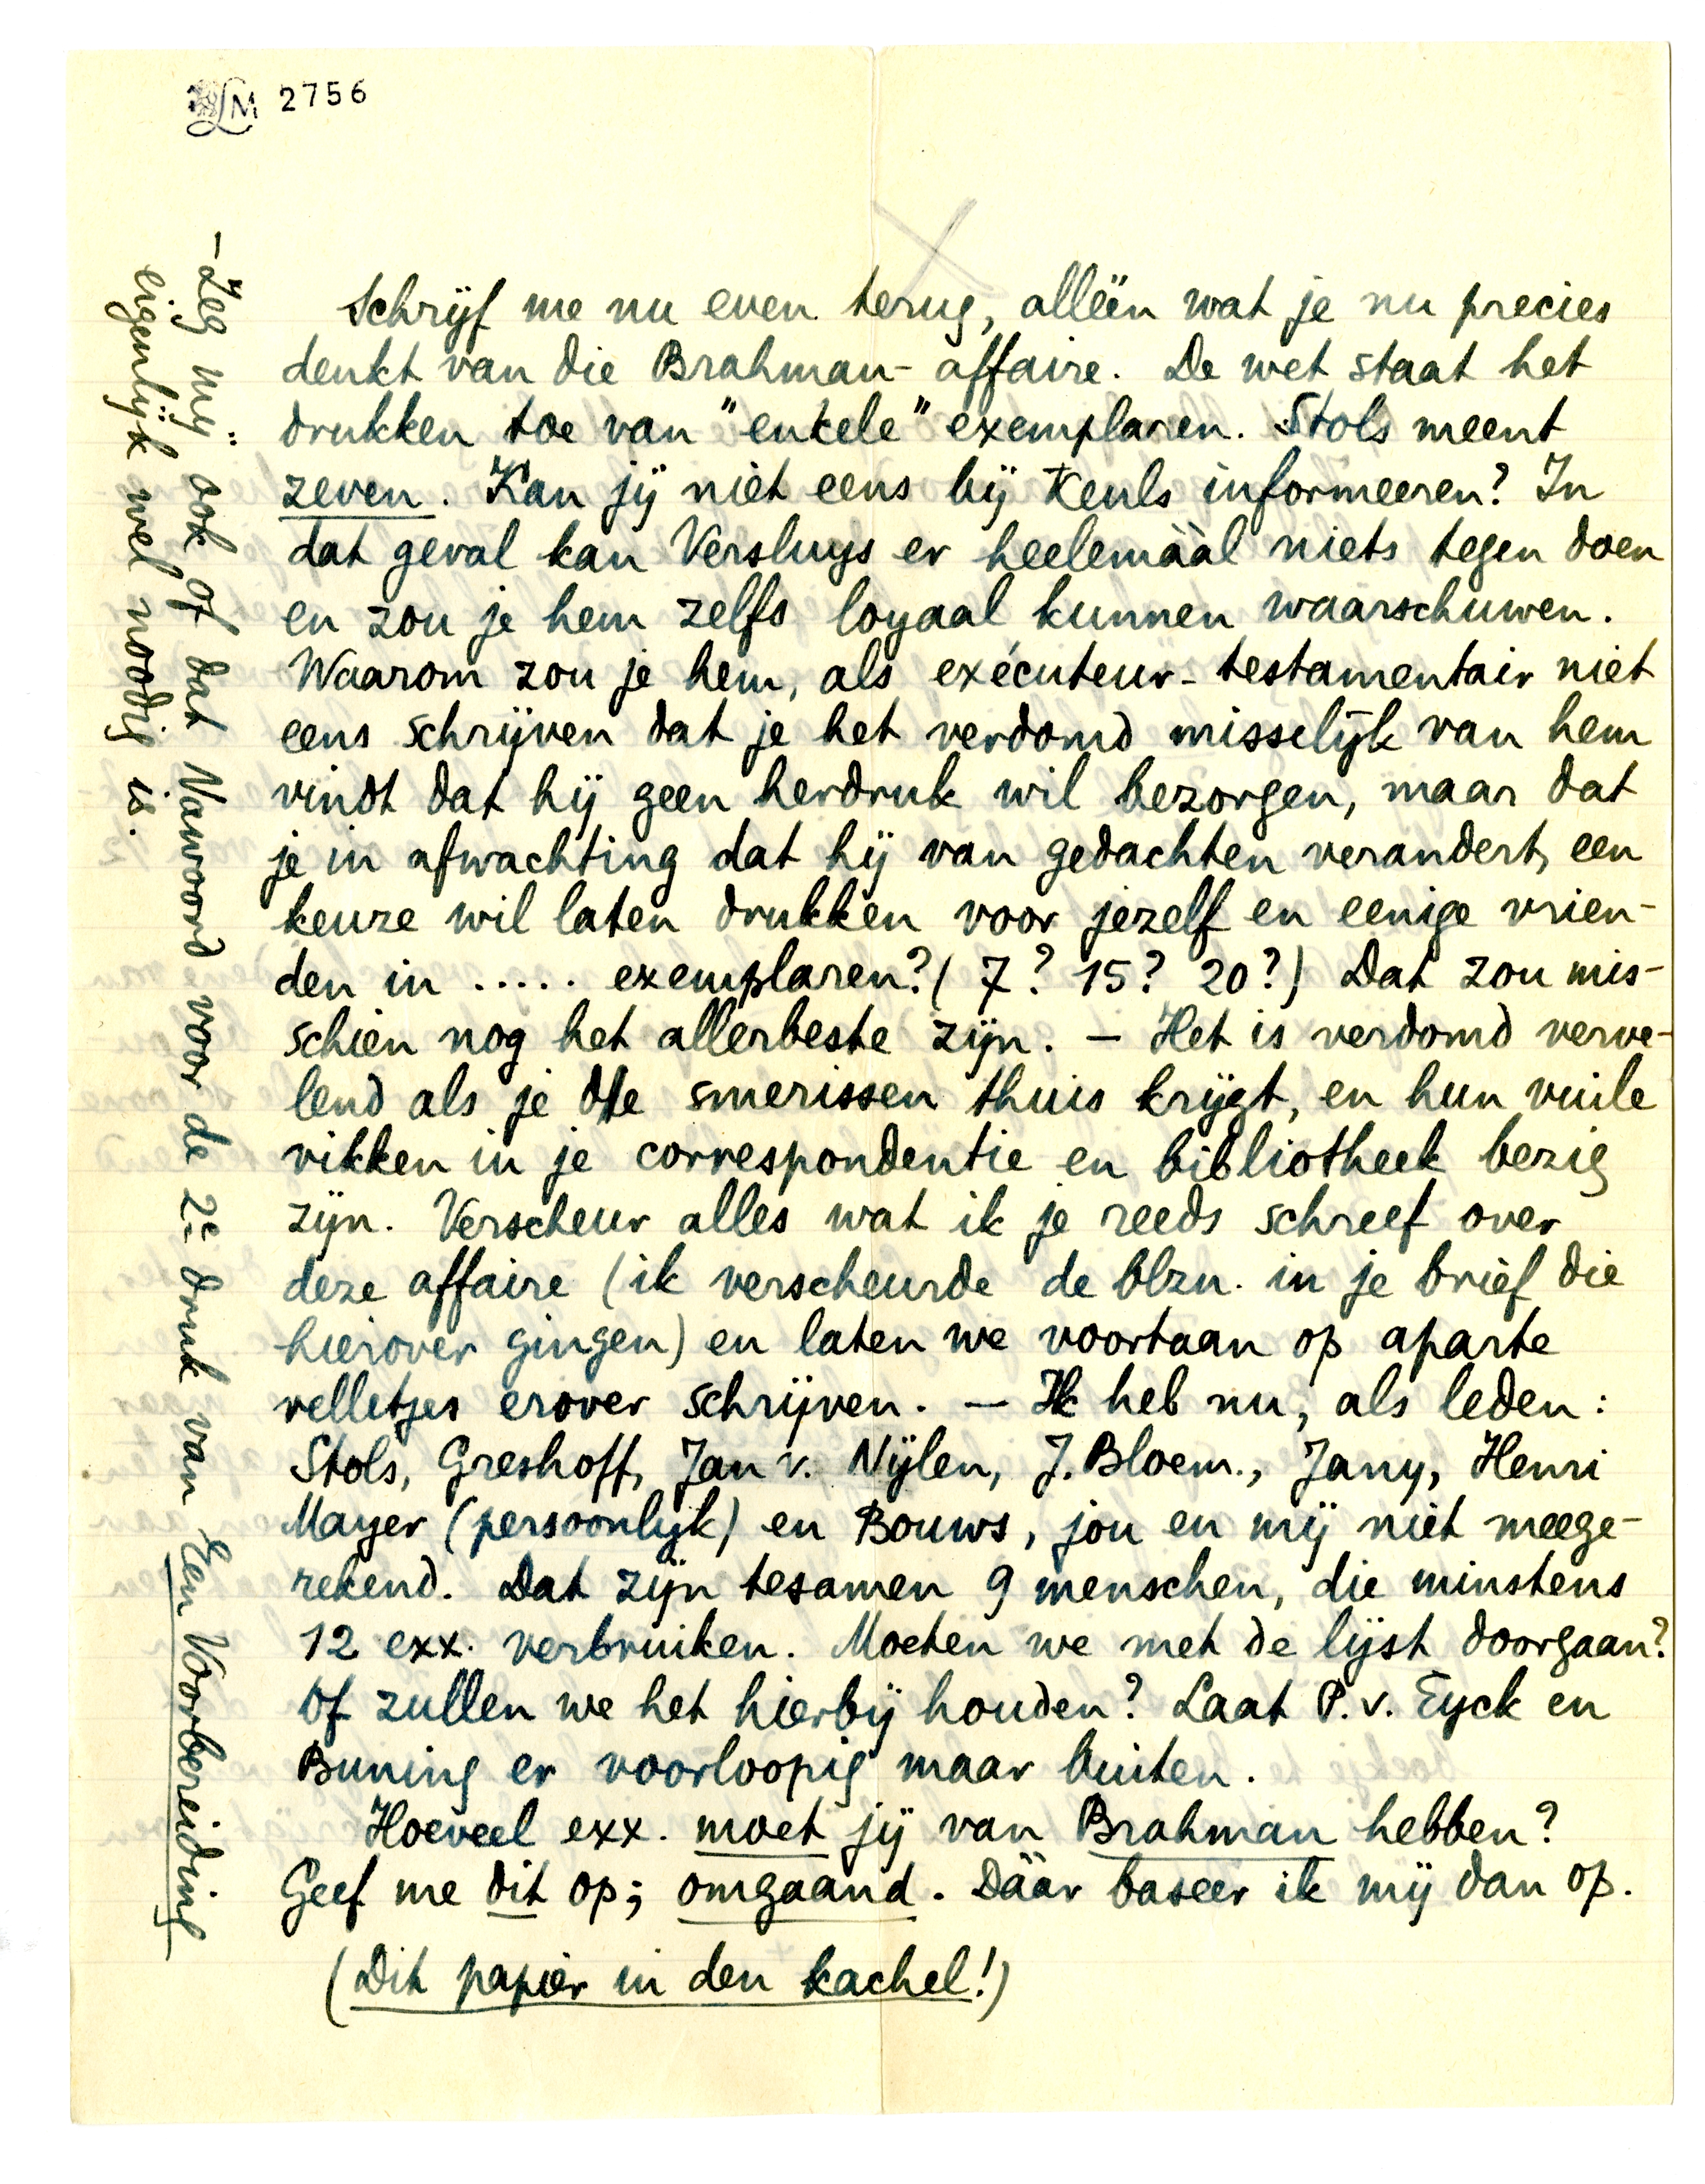 LM 2756
Schrijf me nu even terug, alléén wat je nu precies
denkt van die Brahman-affaire. De wet staat het
drukken toe van "enkele" exemplaren. Stols meent
zeven. Kan jij niet eens bij Keuls informeeren? In
dat geval kan Versluys er heelemáál niets tegen doen
en zou je hem zelfs loyaal kunnen waarschuwen.
Waarom zou je hem, als exécuteur-testamentair niet
eens schrijven dat je het verdomd misselijk van hem
vindt dat hij geen herdruk wil bezorgen, maar dat
je in afwachting dat hij van gedachten verandert, een
keuze wil laten drukken voor jezelf en eenige vrien-
den in ..... exemplaren? (7? 15? 20?) Dat zou mis-
schien nog het allerbeste zijn. — Het is verdomd verve-
lend als je die smerissen thuis krijgt, en hun vuile
vikken in je correspondentie en bibliotheek bezig
zijn. Verscheur alles wat ik je reeds schreef over
deze affaire (ik verscheurde de blzn. in je brief die
hierover gingen) en laten we voortaan op aparte
velletjes erover schrijven. — Ik heb nu, als leden:
Stols, Greshoff, Jan v. Nijlen, J. Bloem., Jany, Henri
Mayer (persoonlijk) en Bouws, jou en mij niet meege-
rekend. Dat zijn tesamen 9 menschen, die minstens
12 exx. verbruiken. Moeten we met de lijst doorgaan?
Of zullen we het hierbij houden? Laat P. v. Eyck en
Buning er voorloopig maar buiten.
Hoeveel exx. moet jij van Brahman hebben?
Geef me dit op; omgaand. Dáár baseer ik mij dan op.
(Dit papier in den kachel!)
- Zeg mij ook of dat Nawoord voor de 2e druk van Een Voorbereiding
eigenlijk wel noodig is.